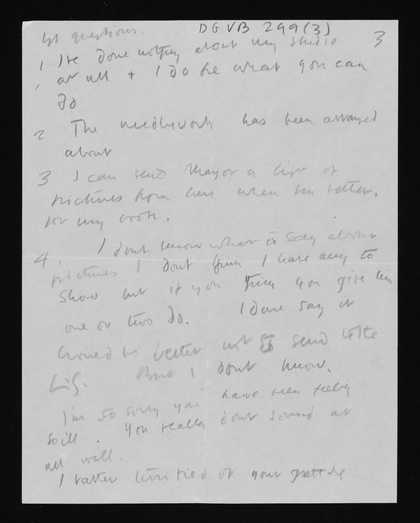 1st questions. DGVB 299(3)
1 Ive done nothing about my studio 3
1 at all + I do be what you can
do
2 The needlework has been arranged
about
3 I can send Mayor a list of
pictures from here when
for my
4. I dont know what to say about
pictures I dont think I have any to
show but if you think you give him
one or two do. I dare say it
would be better not to send to the
I dont know.
I'm so sorry you have been feeling
so ill. You really dont sound at
all well.
I rather of your getting